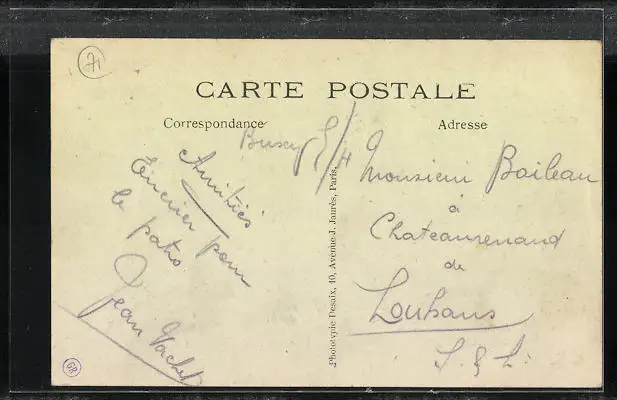 71
CARTE POSTALE
Correspondance
Adresse
Amitiés
pour
le patro
Jean Vachet
Phototypie Desaix, 40, Avenue J. Jaurès, Paris.
Monsieur Boileau
à
Chateaurenaud
de
Louhans
S. & L.
68